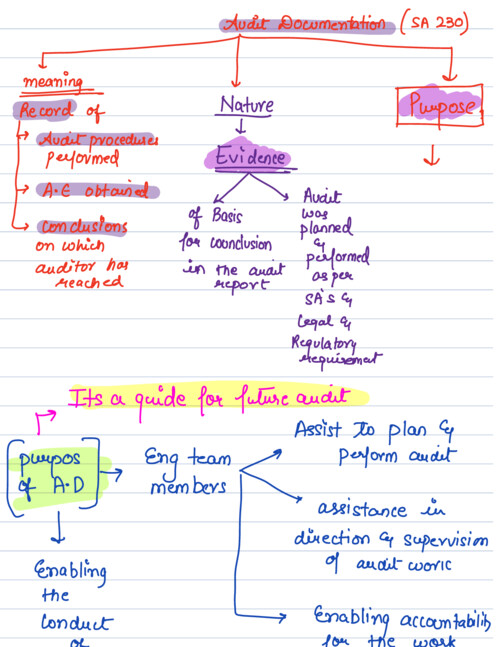 Audit Documentation (SA 230)
meaning
Record of
Audit procedures
performed
A.E obtained
Conclusions
on which
auditor has
reached
Nature
Evidence
of Basis
for coonclusion
in the audit
report
Audit
was
planned
&
performed
as per
SA's &
Legal &
Regulatory
requirement
Purpose
Its a guide for future audit
purpos
of A.D
Eng team
members
Assist To plan &
perform audit
assistance in
direction & supervision
of audit work
Enabling accountability
for the work
Enabling
the
conduct
of